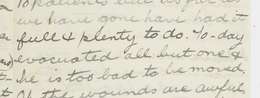 10 patients
we have gone have had it
full & plenty to do. To-day
evacuated all but one &
he is too bad to be moved
of the wounds are awful